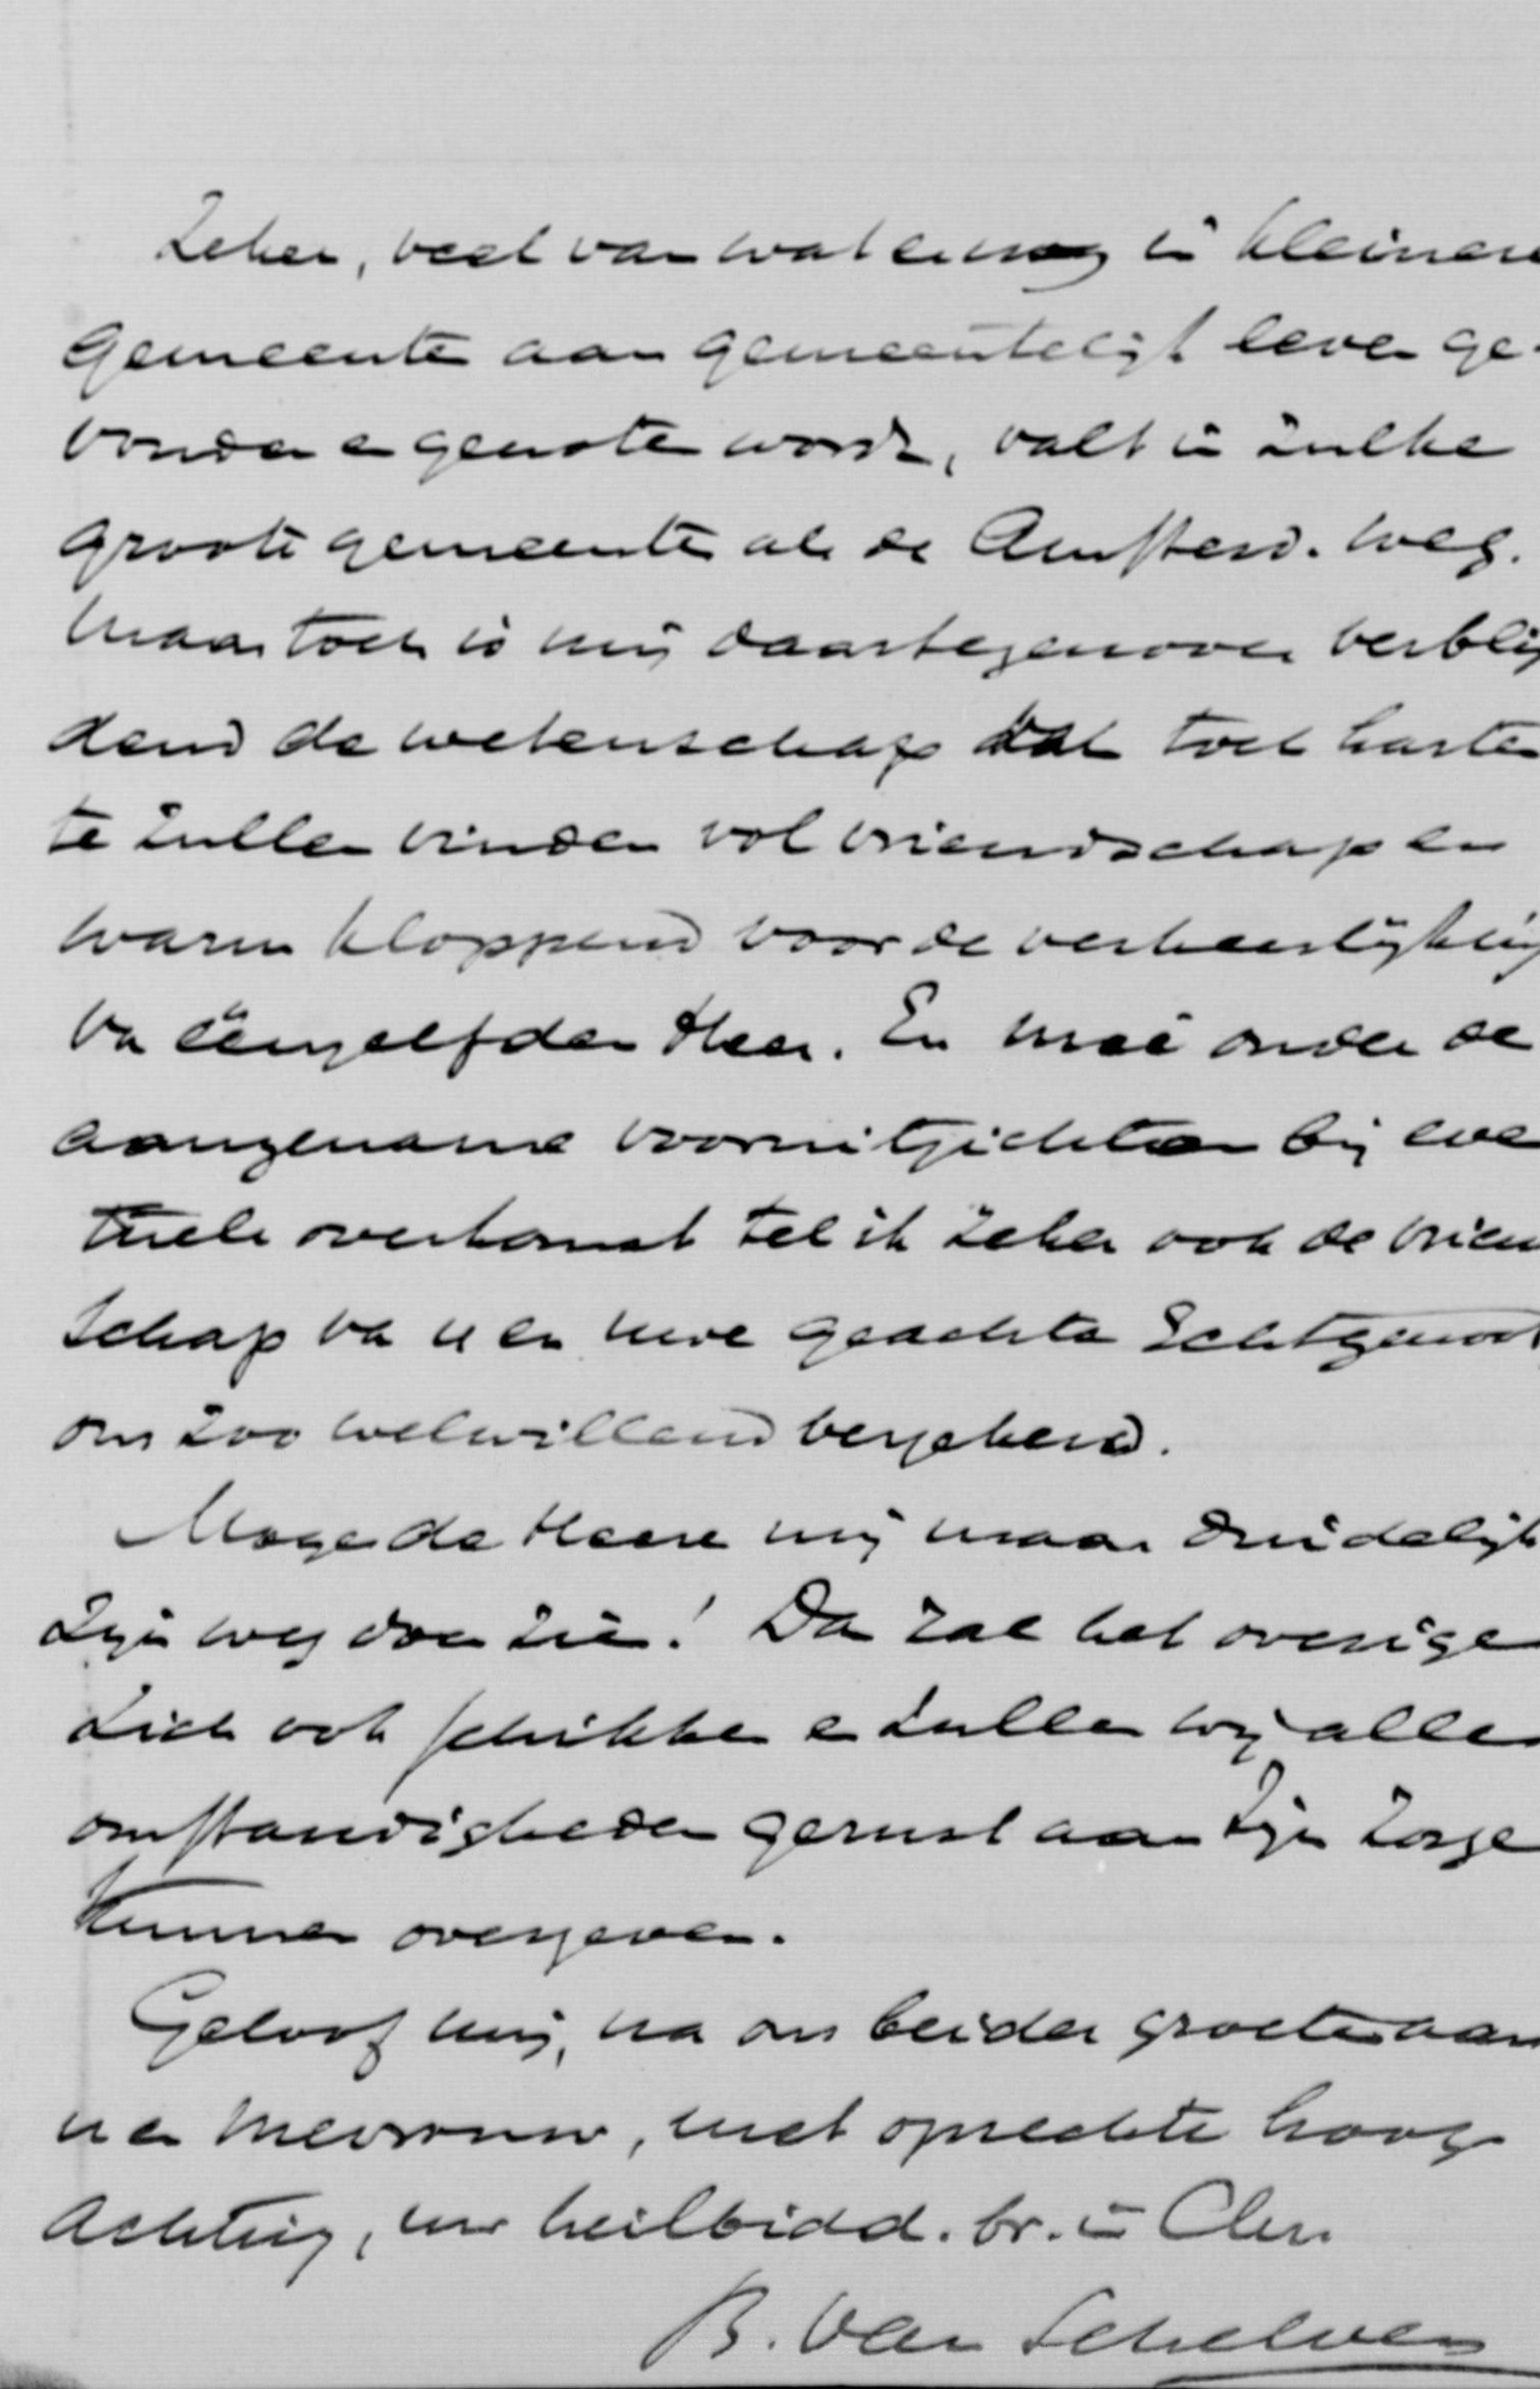 Zeker, veel van wat er nog in kleinere
gemeenten aan gemeentelijk leven ge-
vonden en genoten wordt, valt in zulke
groote gemeenten als de Amsterd. weg.
Maar toch is mij daartegenover verblij
dend de wetenschap dat toch harten
te zullen vinden vol vriendschap en
warm kloppend voor de verheerlijking
van éénzelfden Heer. En meê onder de
aangename vooruitzichten bij even
tueele overkomst tel ik zeker ook de vriend
schap van u en uwe geachte Echtgenoot
ons zoo welwillend verzekerd.
Moge de Heere mij maar duidelijk
Zijn weg doen zien! Dan zal het overige
zich ook schikken en zullen wij alle
omstandigheden gerust aan Zijn zorge
kunnen overgeven.
Geloof mij, na ons beider groeten aan
u en Mevrouw, met oprechte hoog
achting, uw heilbidd. br. in Chr.
B. van Schelven